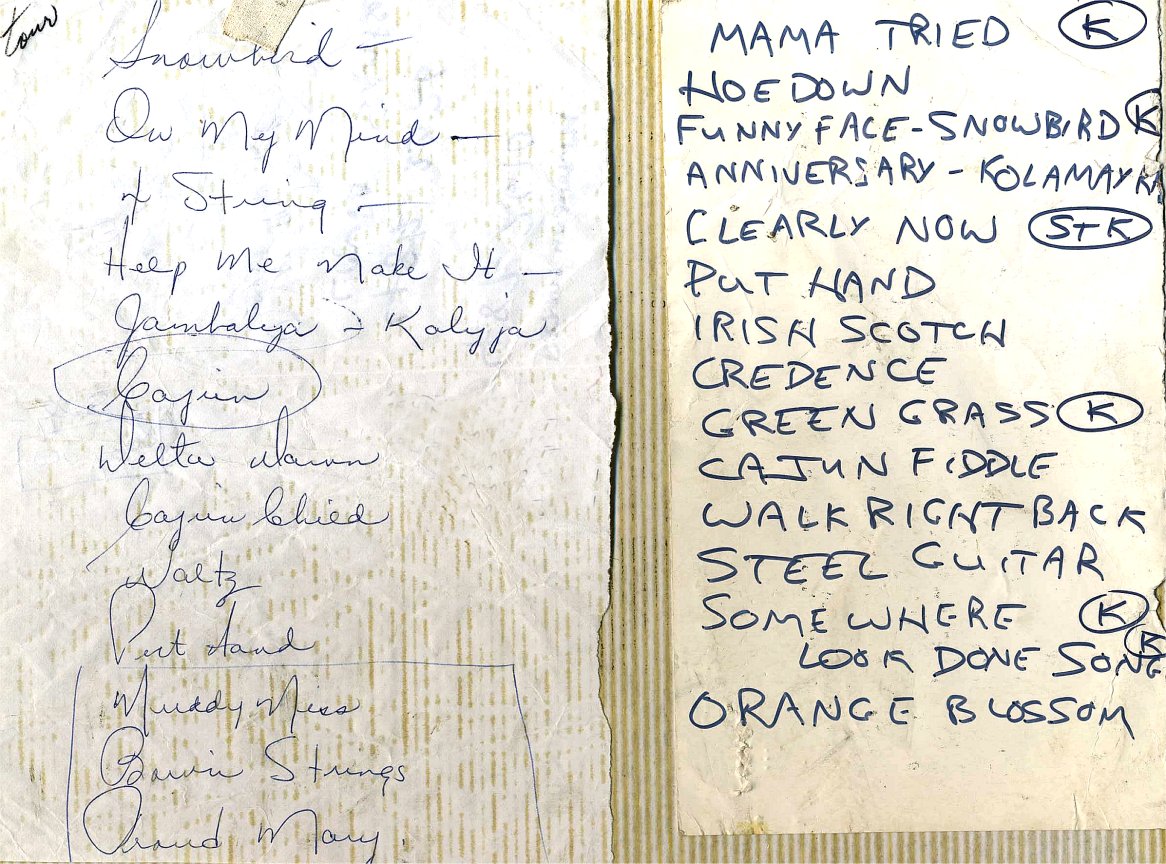 tour
Snowbird –
On My Mind –
+ String –
Help Me Make It –
Jambalya – Kolyja
Cajun
Delta Dawn
Cajun Chied
Waltz
Put Hand
Muddy Miss
Bowin Strings
Proud Mary.
MAMA TRIED K
HOEDOWN
FUNNY FACE - SNOWBIRD K
ANNIVERSARY - KOLAMAYKA
CLEARLY NOW ST K
PUT HAND
IRISH SCOTCH
CREDENCE
GREEN GRASS K
CAJUN FIDDLE
WALK RIGHT BACK
STEEL GUITAR
SOMEWHERE K
LOOK DONE SONG K
ORANGE BLOSSOM